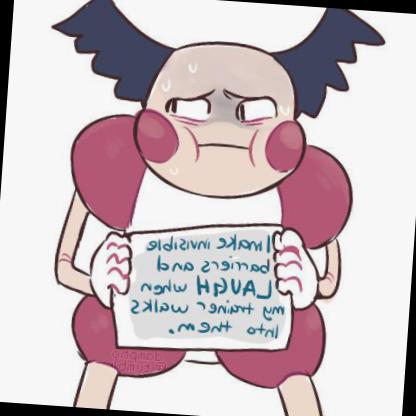 I make invisible
barriers and
LAUGH when
my trainer walks
into them.
dampho
@tumblr